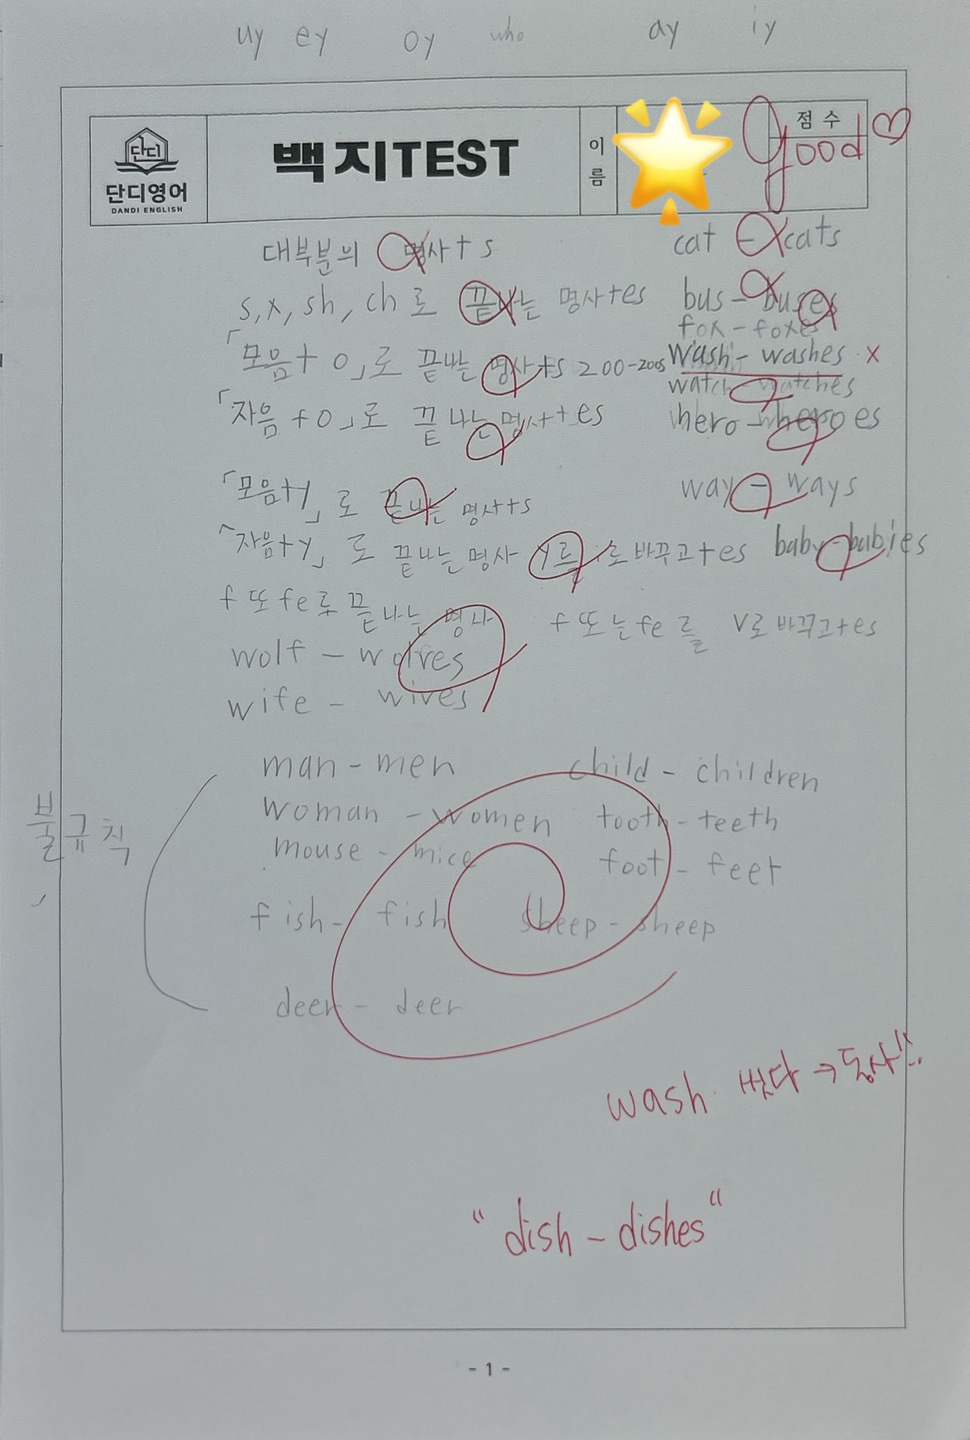 uy ey oy who ay iy
단디
단디영어
DANDI ENGLISH
백지TEST
이름
점수
good
대부분의 명사+s cat - cats
s, x, sh, ch 로 끝나는 명사+es bus - buses
fox - foxes
「모음+o」로 끝나는 명사+s zoo-zoos wash - washes x
watch - watches
「자음+o」로 끝나는 명사+es hero - heroes
「모음+y」로 끝나는 명사+s way - ways
「자음+y」로 끝나는 명사 y를 i로 바꾸고+es baby - babies
f 또 fe로 끝나는 명사 f 또는 fe를 v로 바꾸고+es
wolf - wolves
wife - wives
불규칙
man - men child - children
woman - women tooth - teeth
mouse - mice foot - feet
fish - fish sheep - sheep
deer - deer
wash 씻다 → 동사!!
"dish - dishes"
- 1 -